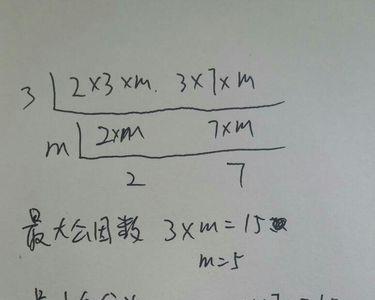 3 2×3×m. 3×7×m
m 2×m 7×m
2 7
最大公因数 3×m=15
m=5